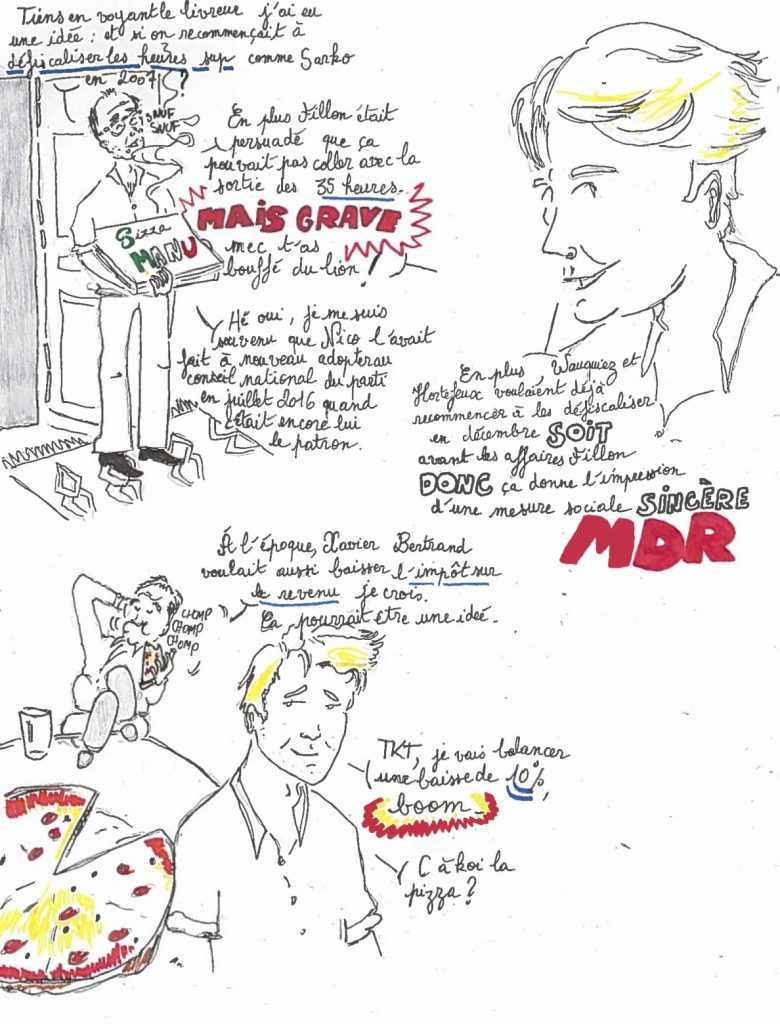 Tiens en voyant le livreur j'ai eu
une idée : et si on recommençait à
défiscaliser les heures sup comme Sarko
en 2007 ?
SNUF
SNUF
En plus Fillon était
persuadé que ça
pouvait pas coller avec la
sortie des 35 heures.
MAIS GRAVE
mec t'as
bouffé du lion !
Pizza
MANU
Hé oui, je me suis
souvenu que Nico l'avait
fait à nouveau adopter au
conseil national du parti
en juillet 2016 quand
c'était encore lui
le patron.
En plus, Wauquiez et
Hortefeux voulaient déjà
recommencer à les défiscaliser
en décembre SOIT
avant les affaires Fillon
DONC ça donne l'impression
d'une mesure sociale SINCÈRE
MDR
À l'époque, Xavier Bertrand
voulait aussi baisser l'impôt sur
le revenu je crois.
Ça pourrait être une idée.
CHOMP
CHOMP
CHOMP
TKT, je vais balancer
une baisse de 10%,
boom
C à koi la
pizza ?